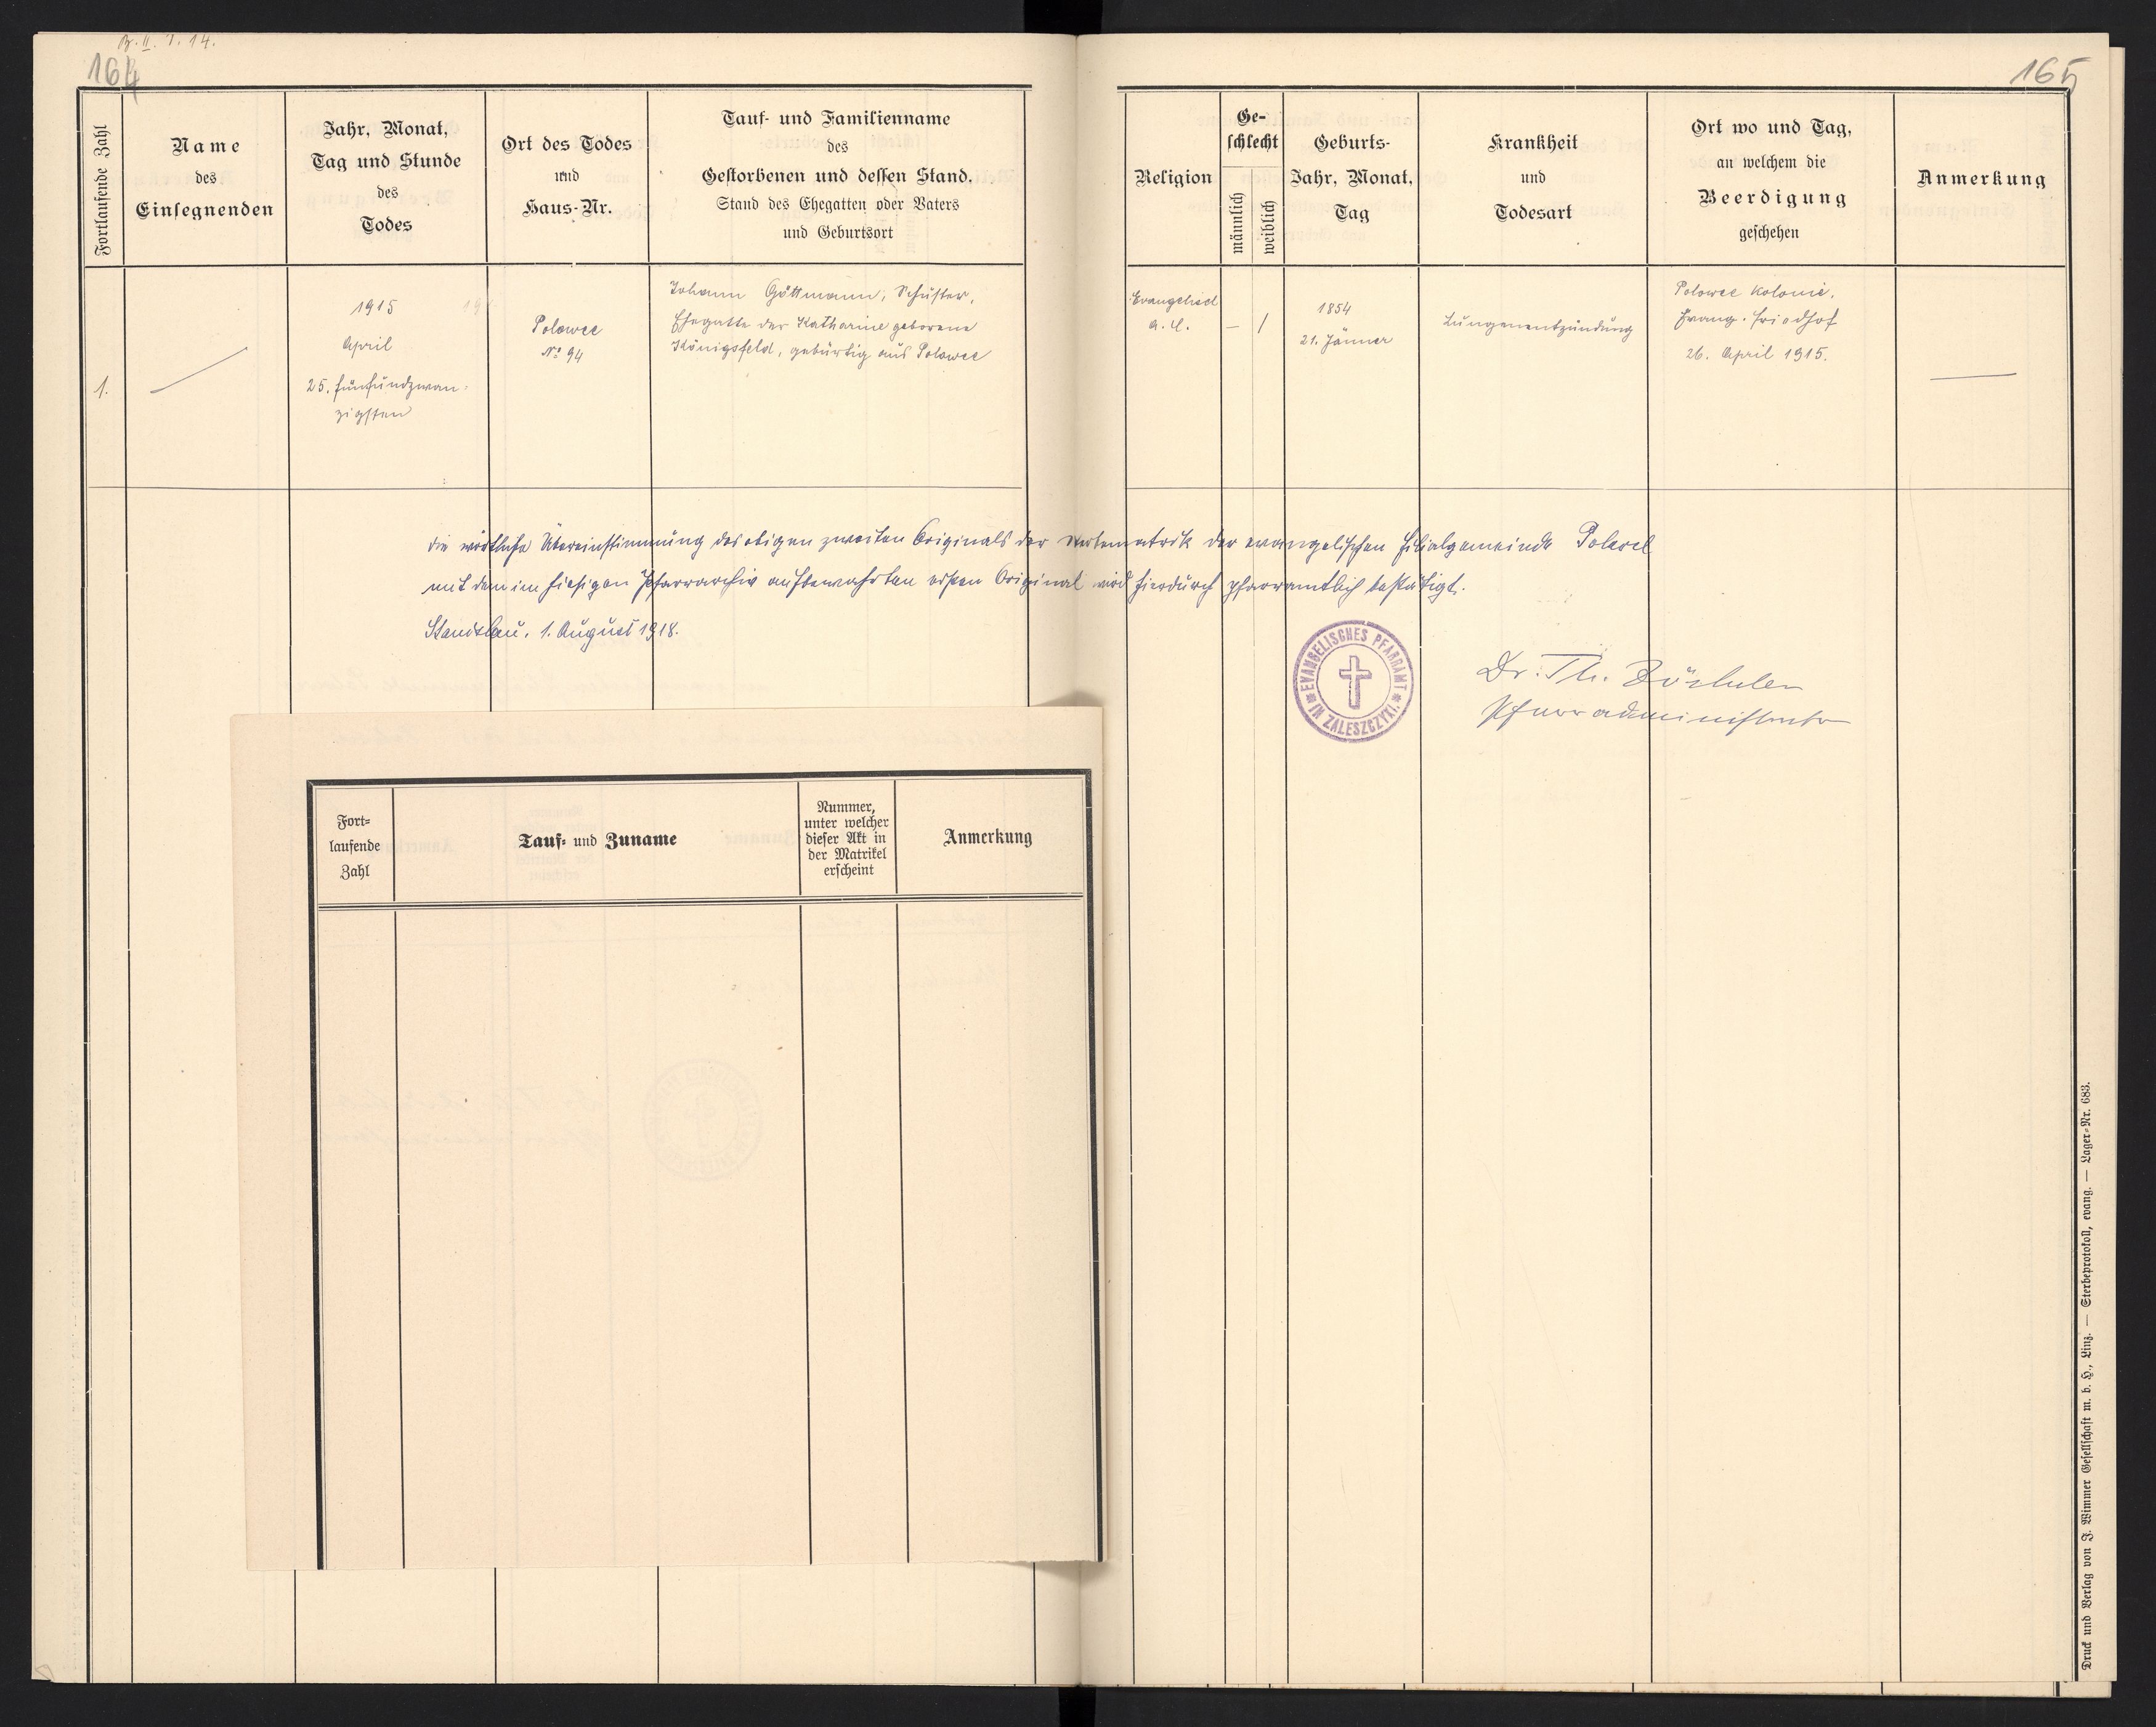 B. II. 7. 14.
164
165
Fortlaufende Zahl
Name
des
Einsegnenden
Jahr, Monat,
Tag und Stunde
des
Todes
Ort des Todes
und
Haus-Nr.
Tauf- und Familienname
des
Gestorbenen und dessen Stand,
Stand des Ehegatten oder Vaters
und Geburtsort
Religion
Ge-
schlecht
männlich
weiblich
Geburts-
Jahr, Monat,
Tag
Krankheit
und
Todesart
Ort wo und Tag,
an welchem die
Beerdigung
geschehen
Anmerkung
1.
1915
April
25. fünfundzwan-
zigsten
Polowce
No 94
Johann Göttmann, Schuster,
Ehegatte der Katharine geborene
Königsfeld, gebürtig aus Polowce
Evangelisch
A. C.
— 1
1854
21. Jänner
Lungenentzündung
Polowce Kolonie,
Evang. Friedhof
26. April 1915.
Die wörtliche Übereinstimmung des obigen zweiten Originals der Sterbematrik der evangelischen Filialgemeinde
mit dem im hiesigen Pfarrarchiv aufbewahrten ersten Original wird hierdurch pfarramtlich bestätigt.
Stanislau, 1. August 1918.
EVANGELISCHES PFARRAMT
IN ZALESZCZYKI
Dr. Th. Zöckler
Pfarradministrator
Fort-
laufende
Zahl
Tauf- und Zuname
Nummer,
unter welcher
dieser Akt in
der Matrikel
erscheint
Anmerkung
Druck und Verlag von J. Wimmer Gesellschaft m. b. H., Linz. — Sterbeprotokoll, evang. — Lager-Nr. 683.